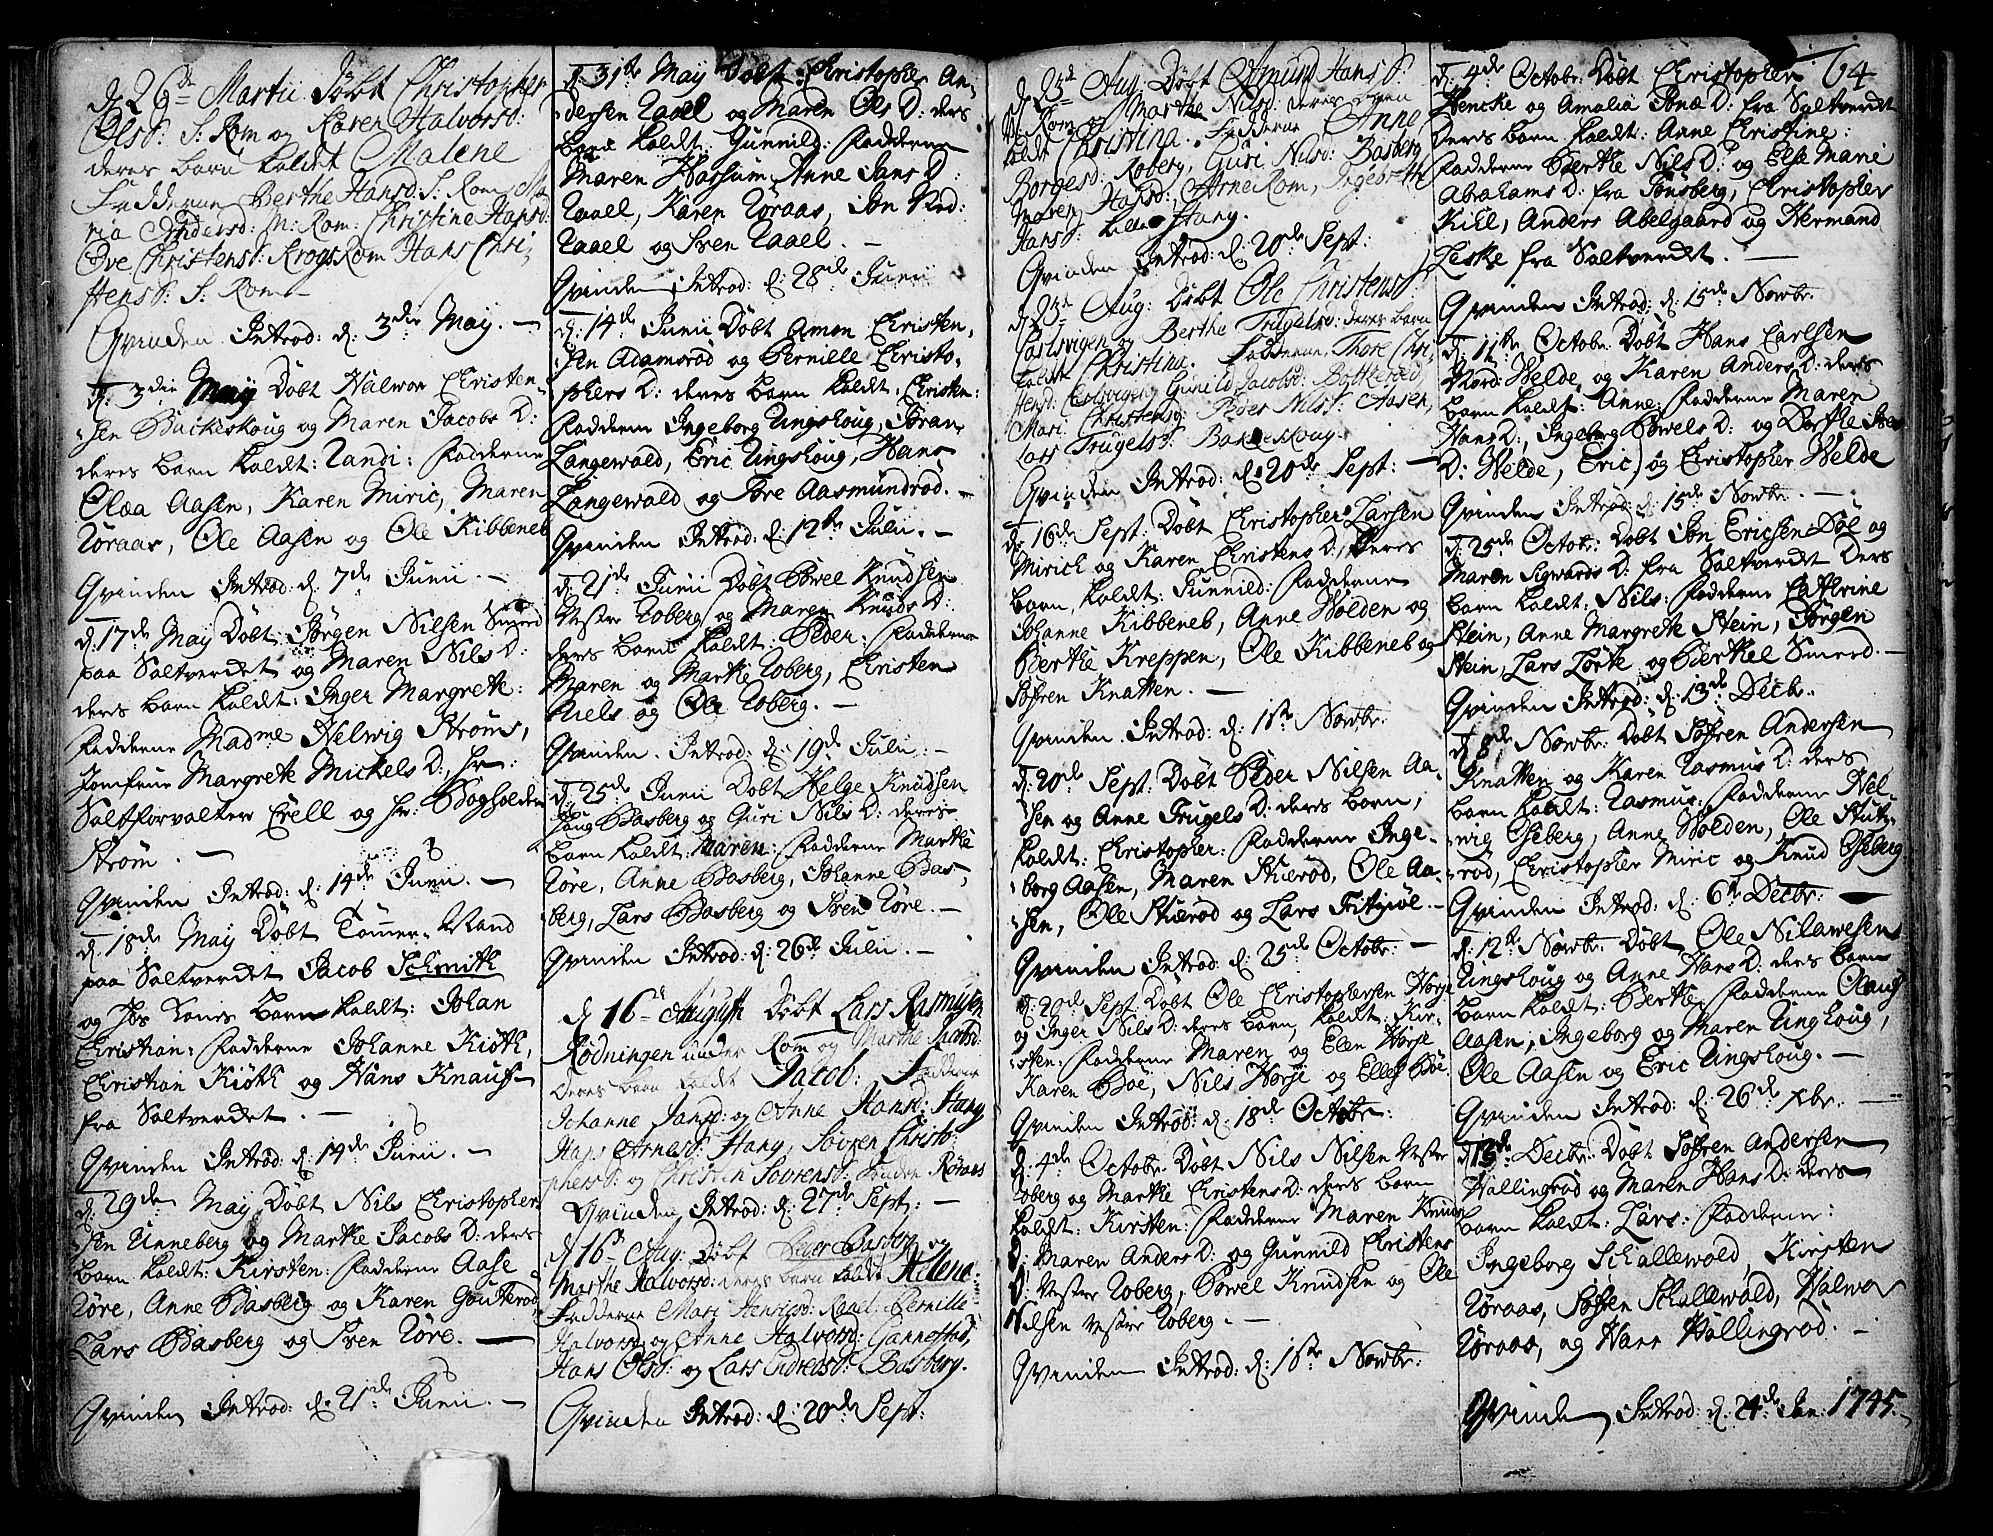 d 26de Martii Döbt Christopher
Ols S: S: Rom og Karen Halvorsd:
deres barn kaldet Malene
Fadderne Berthe Hansd: S: Rom, Ma
ria Andersd: M: Rom: Christine Hansd:
Ove Christens S: Krogs Rom Hans Chri¡
stens S: S: Rom
Qvinden Introd: d: 3die May. —
d: 3die May Döbt Halwor Christen¡
sen Backeskoug og Maren Jacobs D:
deres barn kaldt: Randi: Fadderne
Olea Aasen, Karen Miric, Maren
Röraas, Ole Aasen og Ole Kibbeneb
Qvinden Introd: d: 7de Junii. —
d: 17de May Döbt: Jörgen Nilsen Smed
paa Saltverdet og Maren Nils D:
deres barn kaldt: Inger Margrete:
Fadderne Madme Helwig Ströms,
Jomfrue Margrete Mickels D: Hr:
Saltforvalter Crell og Hr: Bogholder
Ström. —
Qvinden Introd: d: 14de Junii. —
d: 18de May Döbt Tömer-Mand
paa Saltverdet Jacob Schmith
og Hos Konis barn kaldt: Johan
Christian: Fadderne Johanne Kiöth,
Christian Kiöth og Hans Knauf
fra Saltverdet. —
Qvinden Introd: d: 14de Junii. —
d: 29de May Döbt Nils Christopher
sen Unneberg og Marthe Jacobs D: ders
barn kaldt: Kirsten: Fadderne Aase
Röre, Anne Basberg og Karen Gouterod,
Lars Basberg og Sven Röre. —
Qvinden Introd: d: 21de Junii. —
d: 31te May Döbt Christopher An-
dersen Raael og Maren Ols D: ders
barn kaldt: Gunnild: Fadderne
Maren Hassum, Anne Jans D:
Raael, Karen Röraas, Jon Ned:
Raael og Sven Raael. —
Qvinden Introd: d: 28de Junii
d: 14de Junii Döbt Amon Christen,
sen Adamsröd og Pernille Christo,
phers D: deres barn kaldt: Christen:
Fadderne Ingeborg Ringshoug, Jöran
Langewald, Eric Ringshoug, Hans
Langewald og Tore Aasmundröd. —
Qvinden Introd: d: 12te Julii. —
d: 21de Junii Döbt Powel Knudsen
Vestre Roberg og Maren Knuds D:
ders barn kaldt: Peder: Fadderne
Maren og Marthe Roberg, Christen
Niels og Ole Roberg. —
Qvinden Introd: d: 19de Julii. —
d: 25de Junii Döbt Helge Knudsen
Houg Basberg og Guri Nils D: deres
barn kaldt: Maren: Fadderne Marthe
Röre, Anne Basberg, Johanne Bas,
berg, Lars Basberg og Sven Röre. —
Qvinden Introd: d: 26de Julii. —
d 16de Augusti Döbt Lars Rasmusen
Rödningen under Rom og Marthe Jacobsd:
deres barn kaldt Jacob: Fadderne
Johanne Jansd: og Anne Hansd: Hang
Hans Arnes S: Hang, Sövren Christo:
phers S: og Christen Sövrens S: Röraas
Qvinden Introd: d: 27de Sept: —
d 16de Aug: Döbt Basberg og
Marthe Halvorsd: deres barn kaldt Helena:
Fadderne Mari Henricsd: Raael: Pernille
Halvorsd: og Anne Halvorsd: Gannestad,
Hans Ols S: og Lars Basberg.
Qvinden Introd: d: 20de Sept:
64
d 23de Aug. Döbt Amund Hans S:
N: Rom og Marthe Nilsd: deres barn
kaldt Christina. Fadderne Anne
Borgesd: Roberg, Guri Nilsd: Basberg,
Maren Hansd:, Arne Rom, Ingebreth
Hans S: Lille Hang.
Qvinden Introd: d: 20de Sept:
d 23de Aug: Döbt Ole Christens S:
Carlsvigen og Berthe Trugelsd: deres barn
kaldt Christina. Fadderne, Thore Chri,
stensd: Carlsvigen, Gunild Jacobsd: Bottkeröd,
Mari Christensd: Peder Nils S: Aasen,
Lars Trugels S: Bakkeskoug.
Qvinden Introd: d: 20de Sept: —
d: 16de Sept: Döbt Christopher Larsen
Mirich og Karen Christens D: deres
barn, kaldt: Gunnild: Fadderne
Johanne Kibbeneb, Anne Holden og
Berthe Kreppen, Ole Kibbeneb og
Söfren Knatten. —
Qvinden Introd: d: 1ste Nowbr:
d: 20de Sept: Döbt Peder Nilsen Aa-
sen og Anne Trugels D: ders barn,
kaldt: Christopher: Fadderne Inge-
borg Aasen, Maren Stueröd, Ole Aa-
sen, Ole Stueröd og Lars Fritzöe. —
Qvinden Introd: d: 25de Octobr: —
d: 20de Sept. Döbt Ole Christophersen Horje
og Inger Nils D: ders barn, kaldt: Kir-
sten: Fadderne Maren og Elen Horje
Karen Böe, Nils Horje og Ellef Böe
Qvinden Introd: d: 18de Octobr:
d: 4de Octobr: Döbt Nils Nilsen Vester
Roberg og Marthe Christens D: ders barn
kaldt: Kirsten: Fadderne Maren Knuds
D: Maren Anders D: og Gunnild Christens
D: Vestre Roberg, Powel Knudsen og Ole
Nilsen Vestre Roberg. —
Qvinden Introd: d: 1ste Nowbr:
d: 4de Octobr: Döbt Christopher
Hencke og Amalia D: fra Saltverdet
deres barn kaldt: Anne Christine:
Fadderne Berthe Nils D: og Else Marie
Abrahams D: fra Tönsberg, Christopher
Kiil, Anders Abelgaard og Hermand
Leske fra Saltverdet. —
Qvinden Introd: d: 15de Nowbr:
d: 11te Octobr: Döbt Hans Carlsen
Nord: Welde og Karen Anders D: ders
barn kaldt: Anne: Fadderne Maren
Hans D:, Ingeborg Powels D: og Dorthe
D: Welde, Eric og Christopher Welde
Qvinden Introd: d: 15de Nowbr: —
d: 25de Octobr: Döbt Jon Ericsen Böe og
Maren Sigwards D: fra Saltverdet ders
barn kaldt, Nils: Fadderne Cathrine
Stein, Anne Margrete Stein, Jörgen
Stein, Lars Lörte og Berthel Smed. —
Qvinden Introd: d: 13de Decbr:
d: 8de Nowbr: Döbt Söfren Andersen
Knatten og Karen Rasmus D: ders
barn kaldt: Rasmus: Fadderne Hel-
wig Oseberg, Anne Holden, Ole Stut-
röd, Christopher Miric og Knud Oseberg
Qvinden Introd: d: 6te Decbr: —
d: 12te Nowbr: Döbt Ole Nilawesen
Ringshoug og Anne Hans D: ders barn
barn kaldt: Berthe: Fadderne Olaug
Aasen, Ingeborg og Maren Ringshoug,
Ole Aasen og Eric Ringshoug. —
Qvinden Introd: d: 26de xbr. —
d: 13de Decbr: Döbt Söfren Andersen
Hallingröd og Maren Hans D: ders
barn kaldt: Lars: Fadderne:
Ingeborg Schallewold, Kirsten
Röraas, Söfren Schallewald, Halwor
Röraas, og Hans Hallingröd. —
Qvinden Introd: d: 24de Jan: 1745.